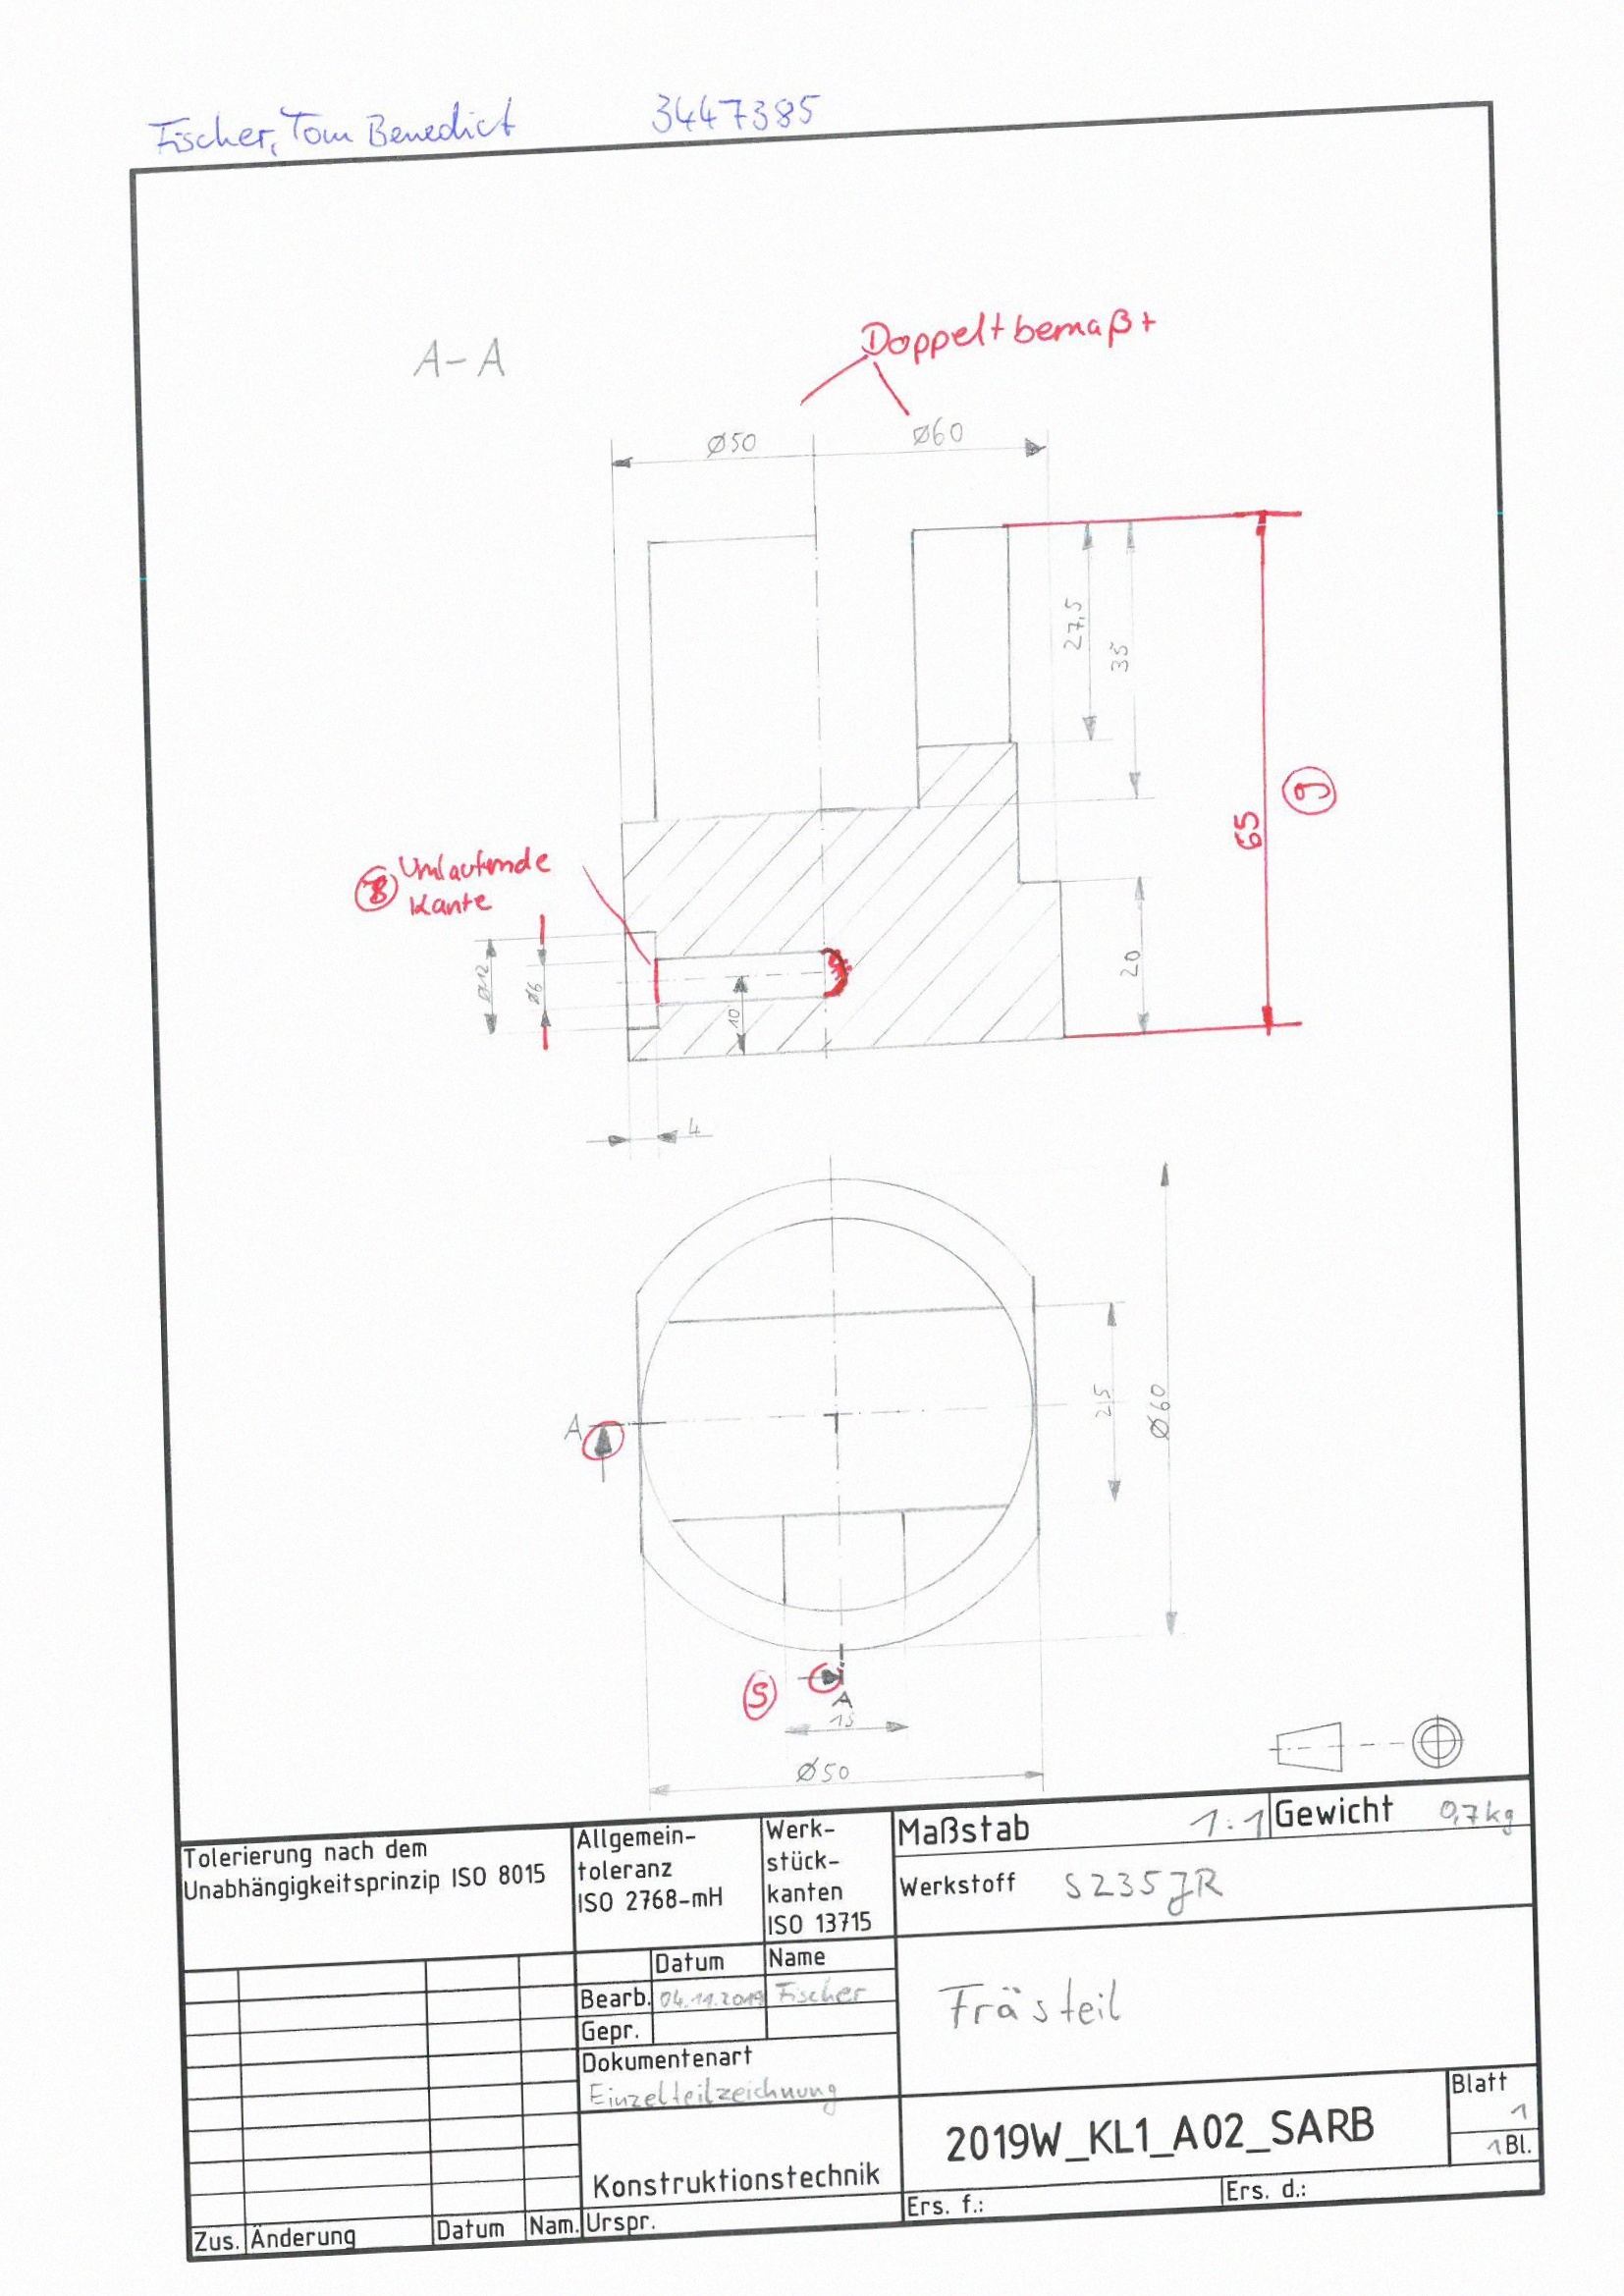 Fischer, Tom Benedict 3447385
Doppelt bemaßt
A-A
Ø50 Ø60
27,5
35
65
9
8 Umlaufende
Kante
Ø12
Ø6
10
20
4
A
25
Ø60
S
A
15
Ø50
Tolerierung nach dem
Unabhängigkeitsprinzip ISO 8015
Allgemein-
toleranz
ISO 2768-mH
Werk-
stück-
kanten
ISO 13715
Maßstab 1:1
Gewicht 0,7kg
Werkstoff S235JR
Datum Name
Bearb. 04.11.2019 Fischer
Gepr.
Dokumentenart
Einzelteilzeichnung
Frästeil
Konstruktionstechnik
2019W_KL1_A02_SARB
Blatt
1
1 Bl.
Zus. Änderung Datum Nam. Urspr.
Ers. f.: Ers. d.: